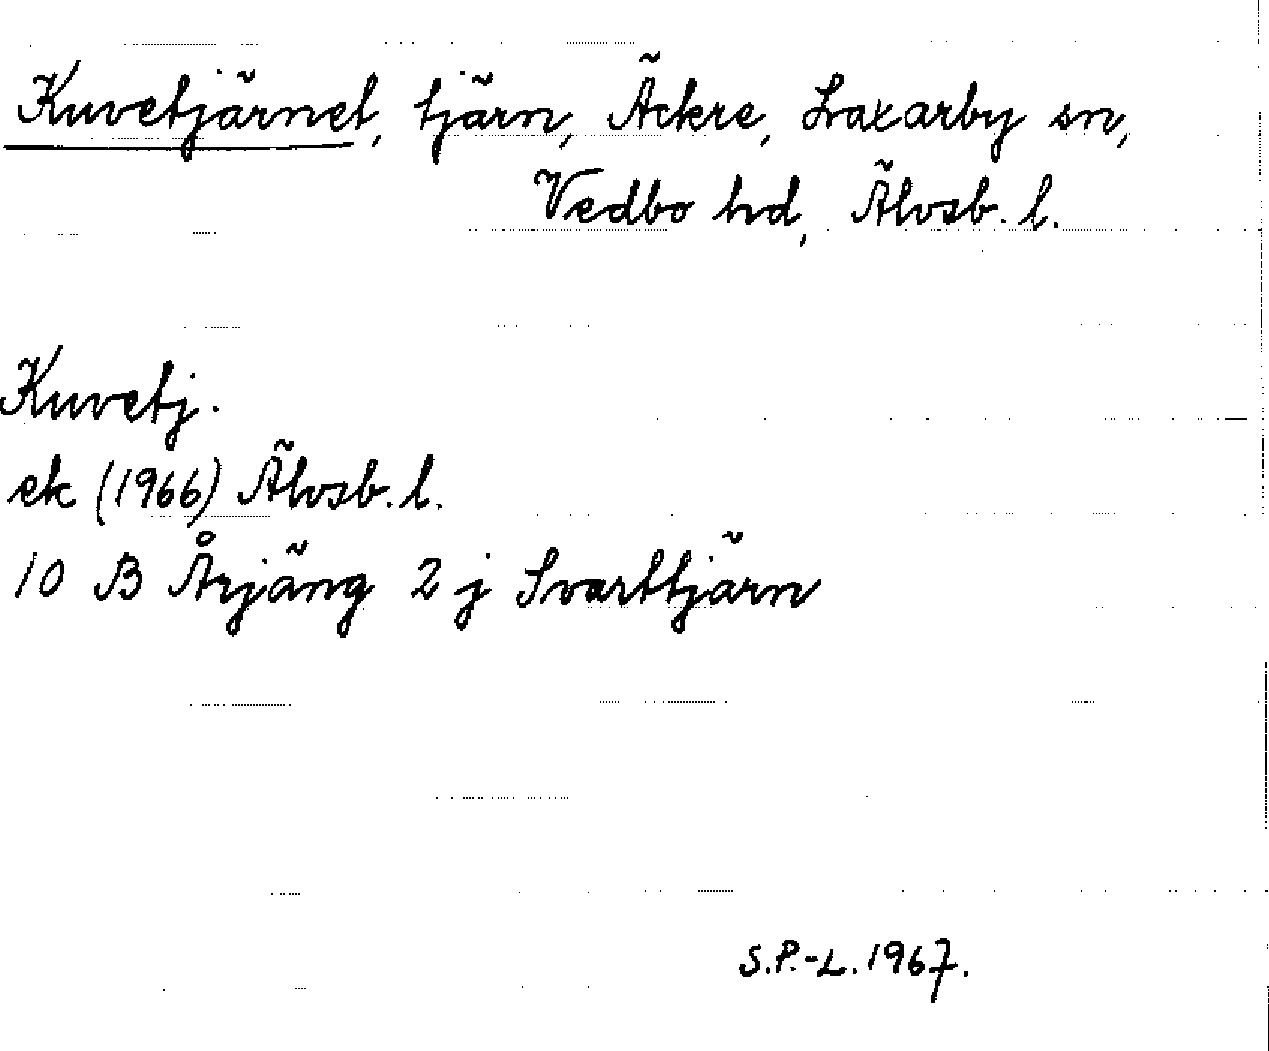 Kuvetjärnet, tjärn, Äckre, Laxarby sn,
Vedbo hd, Älvsb. l.
Kuvetj.
ek (1966) Älvsb. l.
10 B Årjäng 2 j Svarttjärn
S.P.-L. 1967.